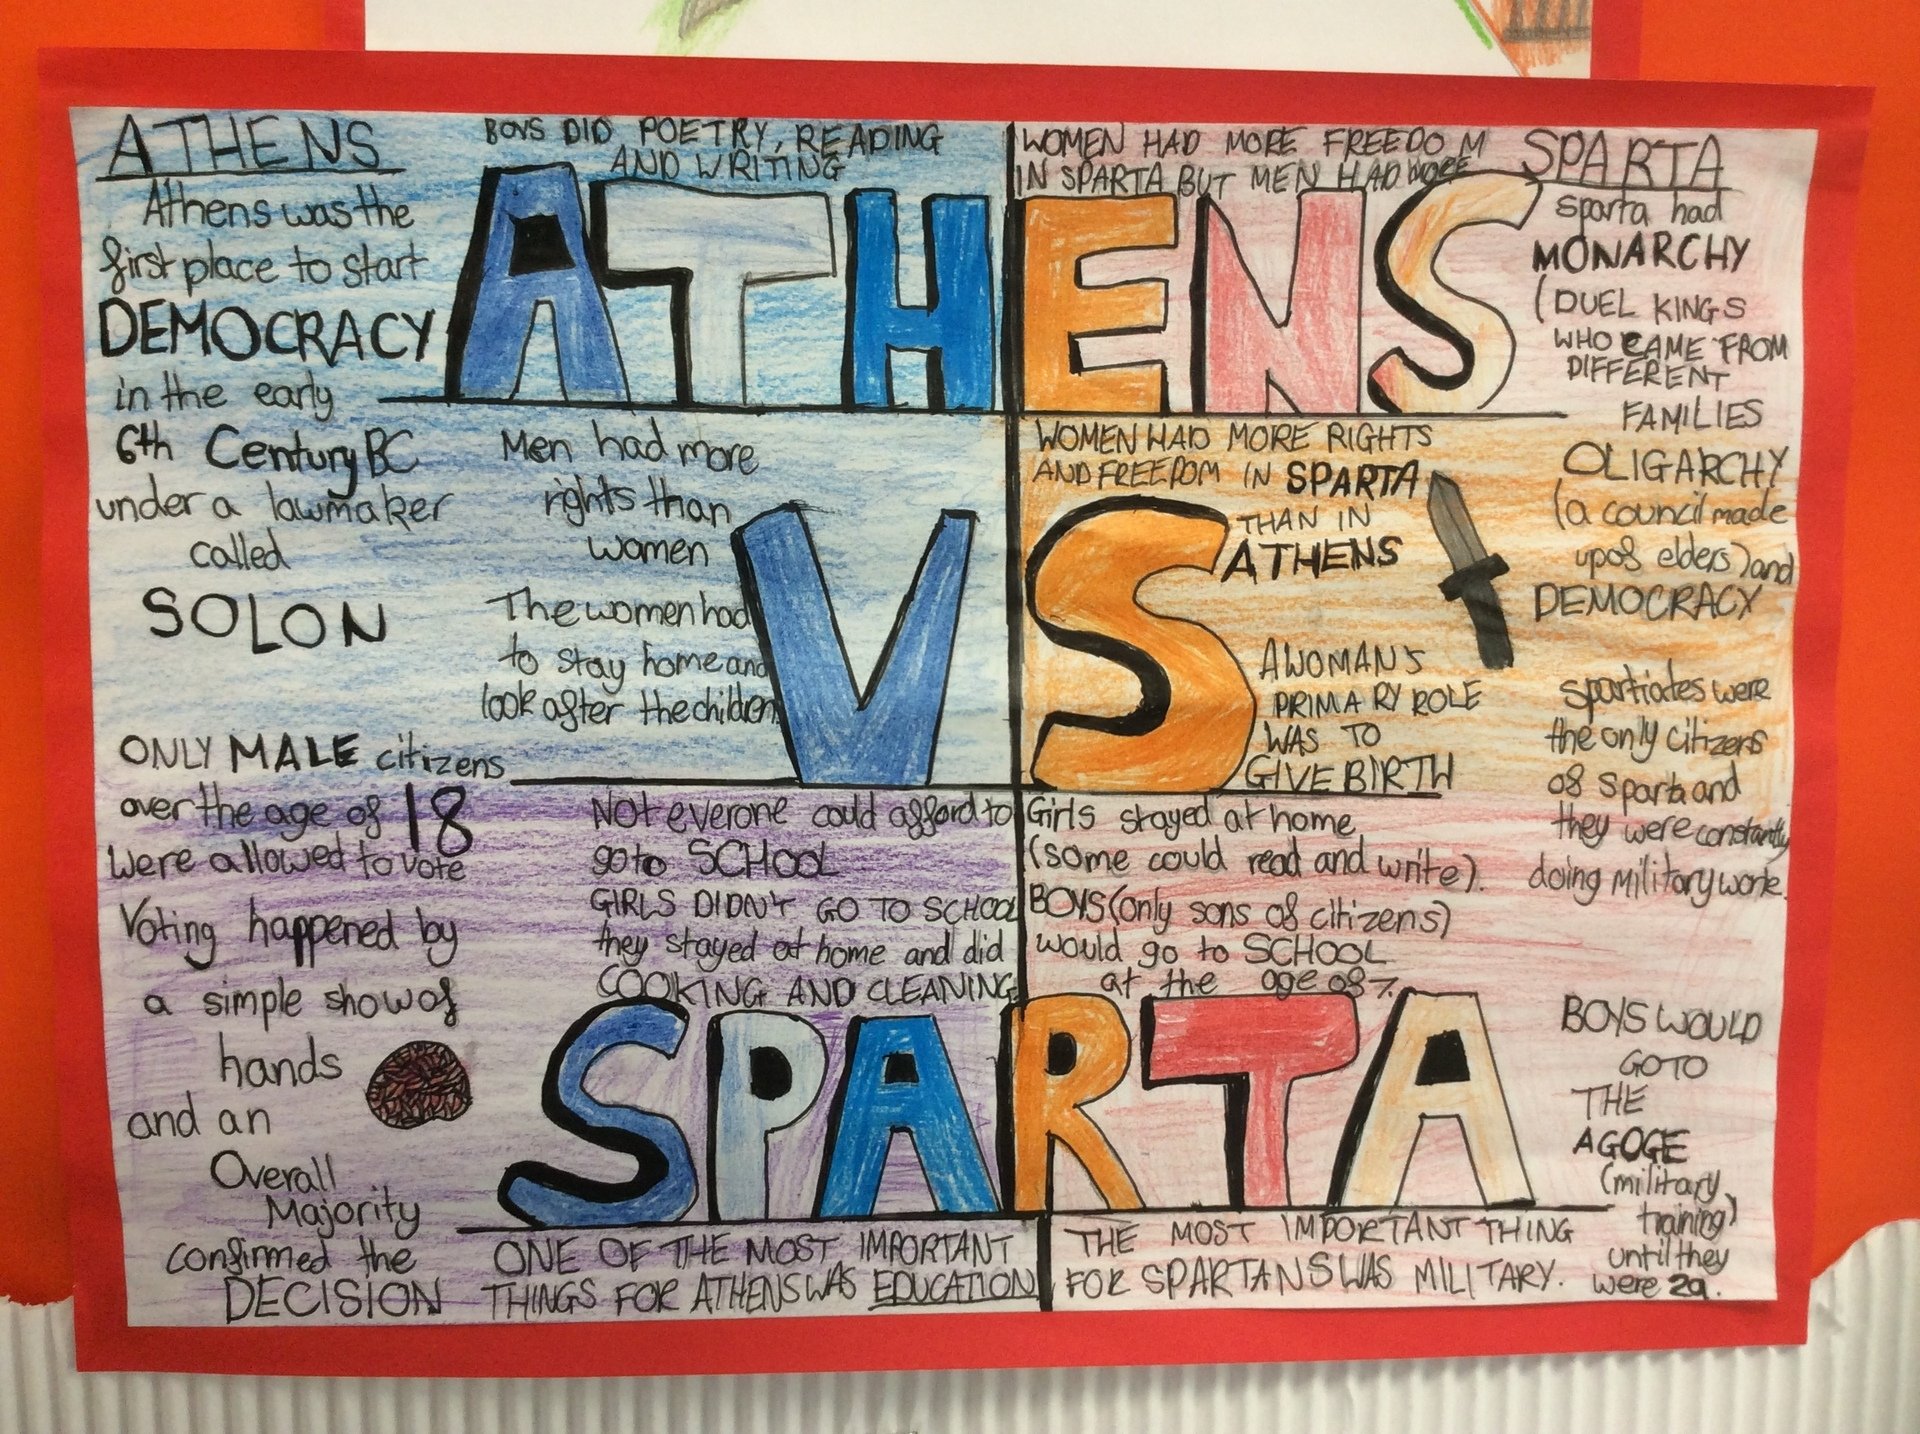 ATHENS
Athens was the
first place to start
DEMOCRACY
in the early
6th Century BC
under a lawmaker
called
SOLON
ONLY MALE citizens
over the age of 18
were allowed to vote
Voting happened by
a simple show of
hands
and an
Overall
Majority
confirmed the
DECISION
BOYS DID POETRY, READING
AND WRITING
ATHENS
Men had more
rights than
women
The women had
to stay home and
look after the children
VS
Not everone could afford to
go to SCHOOL
GIRLS DIDN'T GO TO SCHOOL
they stayed at home and did
COOKING AND CLEANING
SPARTA
ONE OF THE MOST IMPORTANT
THINGS FOR ATHENS WAS EDUCATION
WOMEN HAD MORE FREEDOM
IN SPARTA BUT MEN HAD MORE
WOMEN HAD MORE RIGHTS
AND FREEDOM IN SPARTA
THAN IN
ATHENS
A WOMAN'S
PRIMARY ROLE
WAS TO
GIVE BIRTH
Girls stayed at home
(some could read and write).
BOYS (only sons of citizens)
would go to SCHOOL
at the age of 7.
THE MOST IMPORTANT THING
FOR SPARTANS WAS MILITARY.
SPARTA
sparta had
MONARCHY
(DUEL KINGS
WHO CAME FROM
DIFFERENT
FAMILIES
OLIGARCHY
(a council made
up of elders) and
DEMOCRACY
spartiates were
the only citizens
of sparta and
they were constantly
doing military work.
BOYS WOULD
GO TO
THE
AGOGE
(military
training)
until they
were